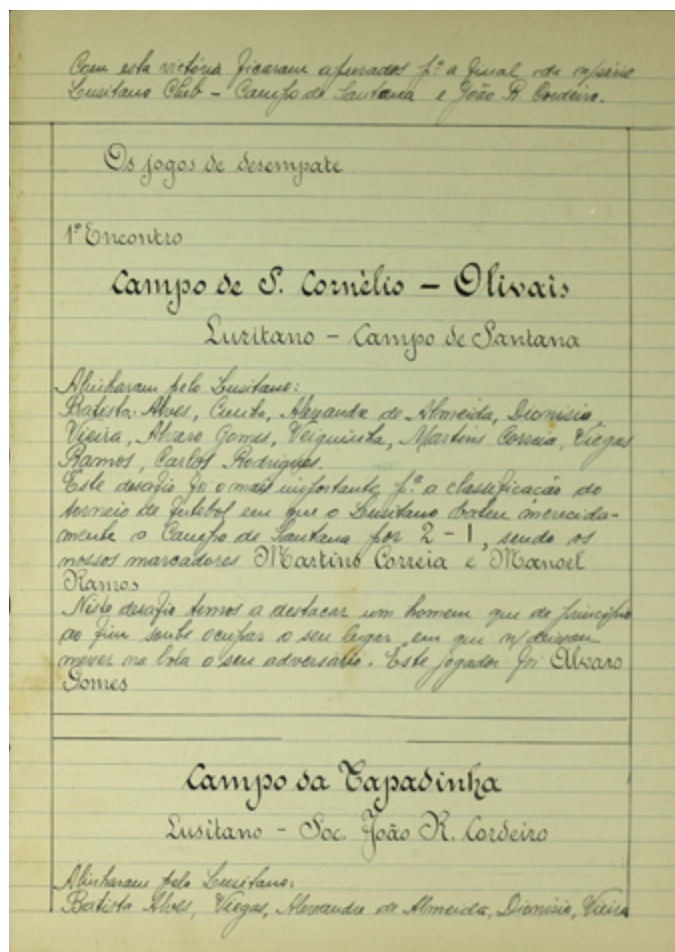 Com esta victória ficaram apurados pª a final da n/série
Lusitano Club - Campo de Santana e João R. Cordeiro.
Os jogos de desempate
1º Encontro
Campo de S. Cornèlio - Olivais
Luzitano - Campo de Santana
Alinharam pelo Lusitano:
Batista Alves, Cunha, Alexandre de Almeida, Dionisio
Vieira, Alvaro Gomes, Veiguinha, Martins Correia, Viegas
Ramos, Carlos Rodrigues.
Este desafio foi o mais importante pª a classificação do
torneio de futebol em que o Lusitano bateu merecida-
mente o Campo de Santana por 2 - 1, sendo os
nossos marcadores Martins Correia e Manoel
Ramos
Neste desafio temos a destacar um homem que de principio
ao fim soube ocupar o seu lugar, em que n/ deixou
mexer na bola o seu adversário. Este jogador foi Alvaro
Gomes
Campo da Tapadinha
Lusitano - Soc. João R. Cordeiro
Alinharam pelo Lusitano:
Batista Alves, Viegas, Alexandre de Almeida, Dionisio, Vieira